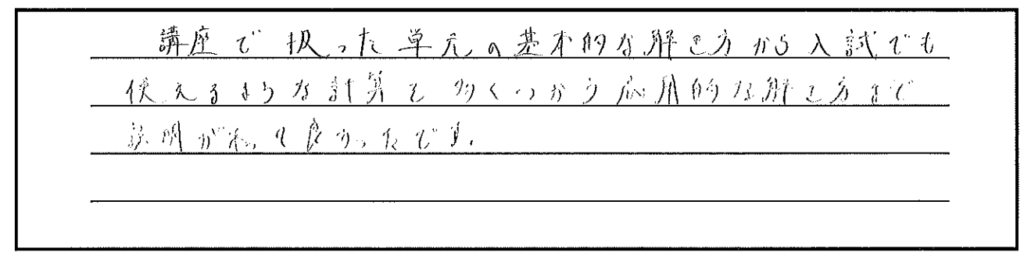 講座で扱った単元の基本的な解き方から入試でも
使えるような計算を多くつかう応用的な解き方まで
説明があって良かったです。